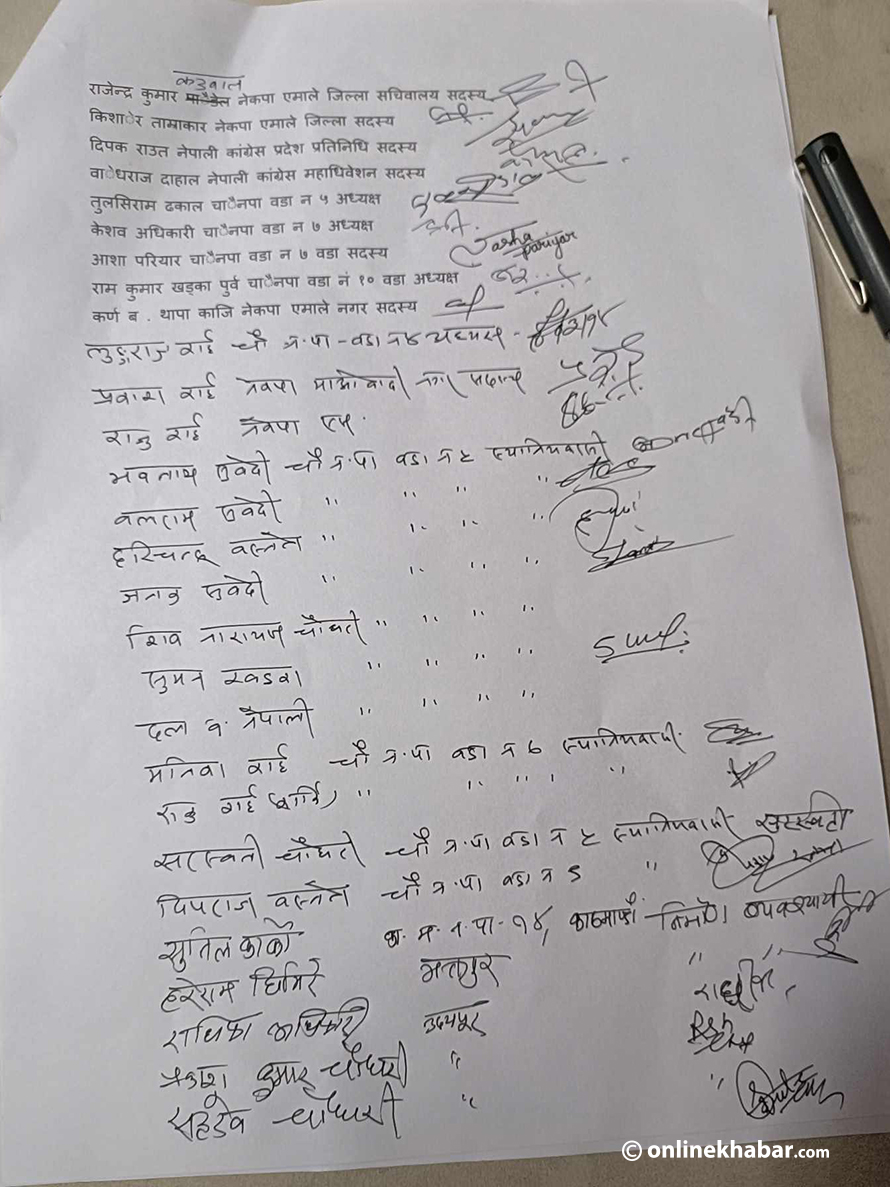 कटुवाल
राजेन्द्र कुमार पाैडेल नेकपा एमाले जिल्ला सचिवालय सदस्य
किशाेर ताम्राकार नेकपा एमाले जिल्ला सदस्य
दिपक राउत नेपाली कांग्रेस प्रदेश प्रतिनिधि सदस्य
वाेधराज दाहाल नेपाली कांग्रेस महाधिवेशन सदस्य
तुलसिराम ढकाल चाैनपा वडा न ५ अध्यक्ष
केशव अधिकारी चाैनपा वडा न ७ अध्यक्ष
आशा परियार चाैनपा वडा न ७ वडा सदस्य
Aasha pariyar
राम कुमार खड्का पुर्व चाैनपा वडा नं १० वडा अध्यक्ष
कर्ण ब . थापा काजि नेकपा एमाले नगर सदस्य
राई चौ न.पा - वडा न ४ अध्यक्ष -
प्रकाश राई नेकपा माओवादी नगर
राजु राई नेकपा एस.
सुवेदी चौ न.पा वडा न ८ स्थानियवासी
वलराम सुवेदी " " " "
हरिचन्द्र वस्नेत " " " "
जनक सुवेदी " " " "
शिव नारायण चौधरी " " " "
सुमन खड्का " " " "
दल ब. नेपाली " " " "
मनिका राई चौ न.पा वडा न ७ स्थानियवासी
राजु राई " " " " "
सरस्वती चौधरी चौ न.पा वडा न ८ स्थानियवासी सरस्वती
दिपराज वस्नेत चौ न.पा वडा न ८ "
सुनिल कार्की का. म. न. पा - १४, काठमाण्डौ निर्माण व्यवसायी
हरेराम घिमिरे भक्तपुर " "
राधिका अधिकारी उदयपुर
प्रकाश कुमार चौधरी "
सहदेव चौधरी " "
© onlinekhabar.com